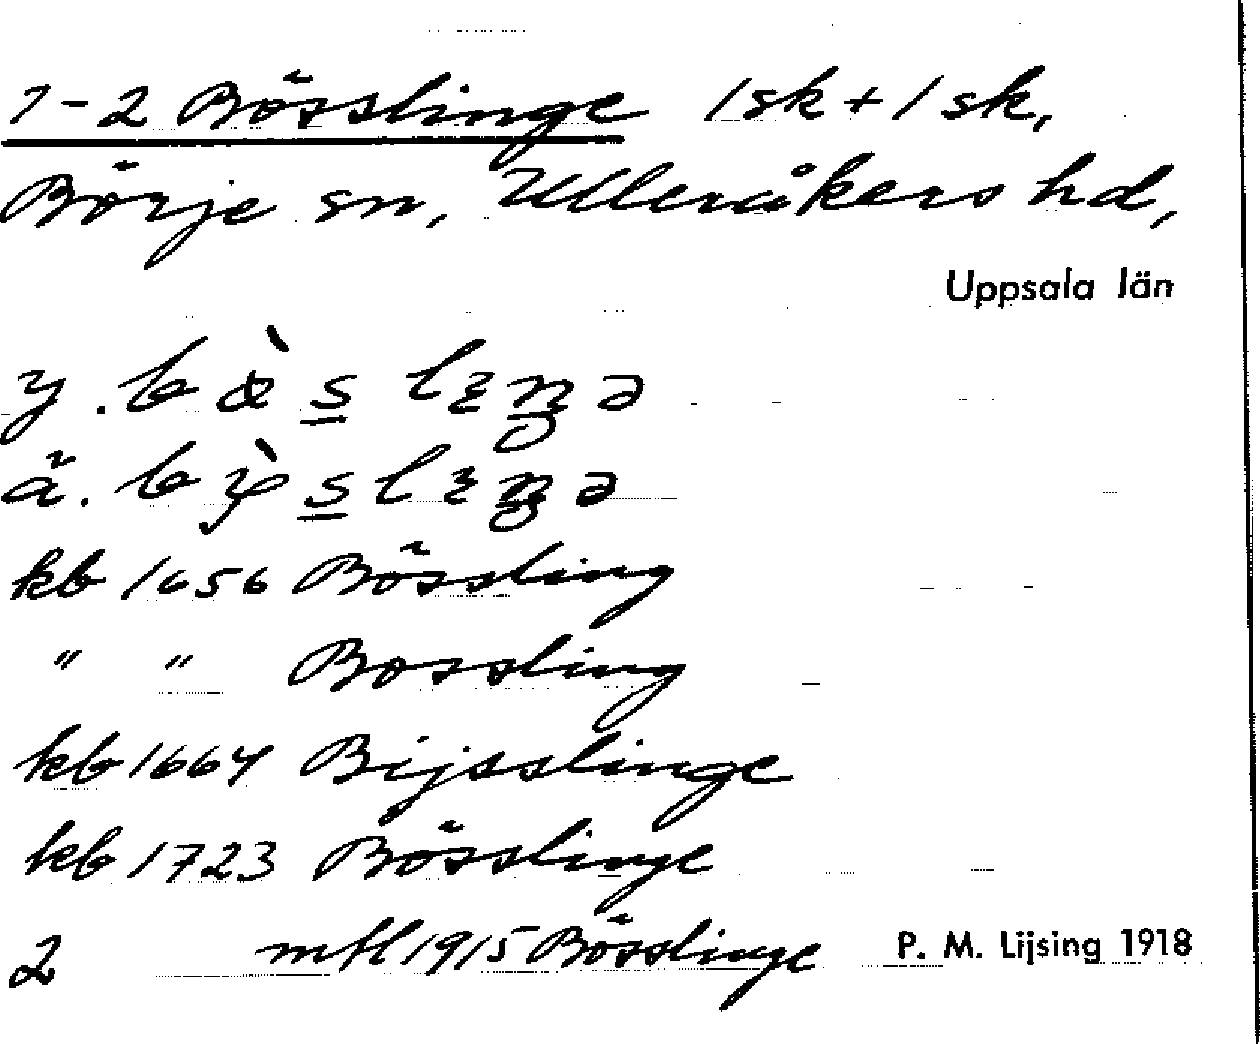 1-2 Bösslinge 1 sk + 1 sk,
Börje sn, Ulleråkers hd,
Uppsala län
y.
ä.
kb 1656 Bössling
" " Bossling
kb 1664 Bijsslinge
kb 1723 Bösslinge
2 mfl 1915 Bösslinge P. M. Lijsing 1918